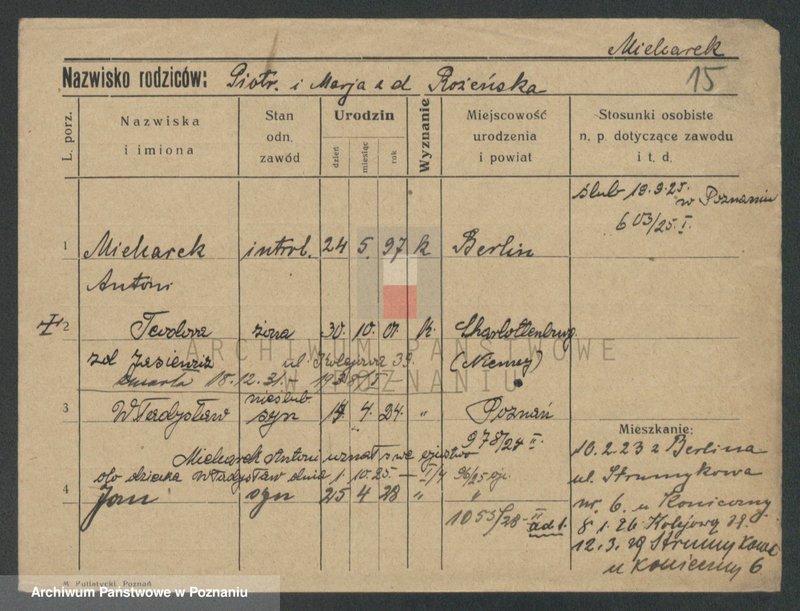 Mielcarek
15
Nazwisko rodziców: Piotr i Marja z d Rożeńska
L. porz.
Nazwiska
i imiona
Stan
odn.
zawód
Urodzin
dzień
miesiąc
rok
Wyznanie
Miejscowość
urodzenia
i powiat
Stosunki osobiste
n. p. dotyczące zawodu
i t. d.
ślub 19.9.25.
w Poznaniu
603/25. I.
1 Mielcarek introl. 24 5. 97 k Berlin
Antoni
2 Teodora żona 30. 10. 01. k. Charlottenburg
zd Jasienicz ul. Kolejowa 39. (Niemcy)
zmarła 18.12.31.
nieślub.
3 Władysław syn 4. 24. " Poznań
978/24 II.
Mielcarek Antoni uznał swe ojcostwo
do dziecka Władysław dnia 1. 10. 25
4 Jan syn 25 4 28 " "
1053/28 II
ad 1.
Mieszkanie:
10.2.23 z Berlina
ul. Strumykowa
nr. 6. u Konieczny
8.1.26 Kolejowa 39.
12.3.29 Strumykowa
u Koniecznej 6
ARCHIWUM PAŃSTWOWE
W POZNANIU
M. Putiatycki, Poznań
Archiwum Państwowe w Poznaniu